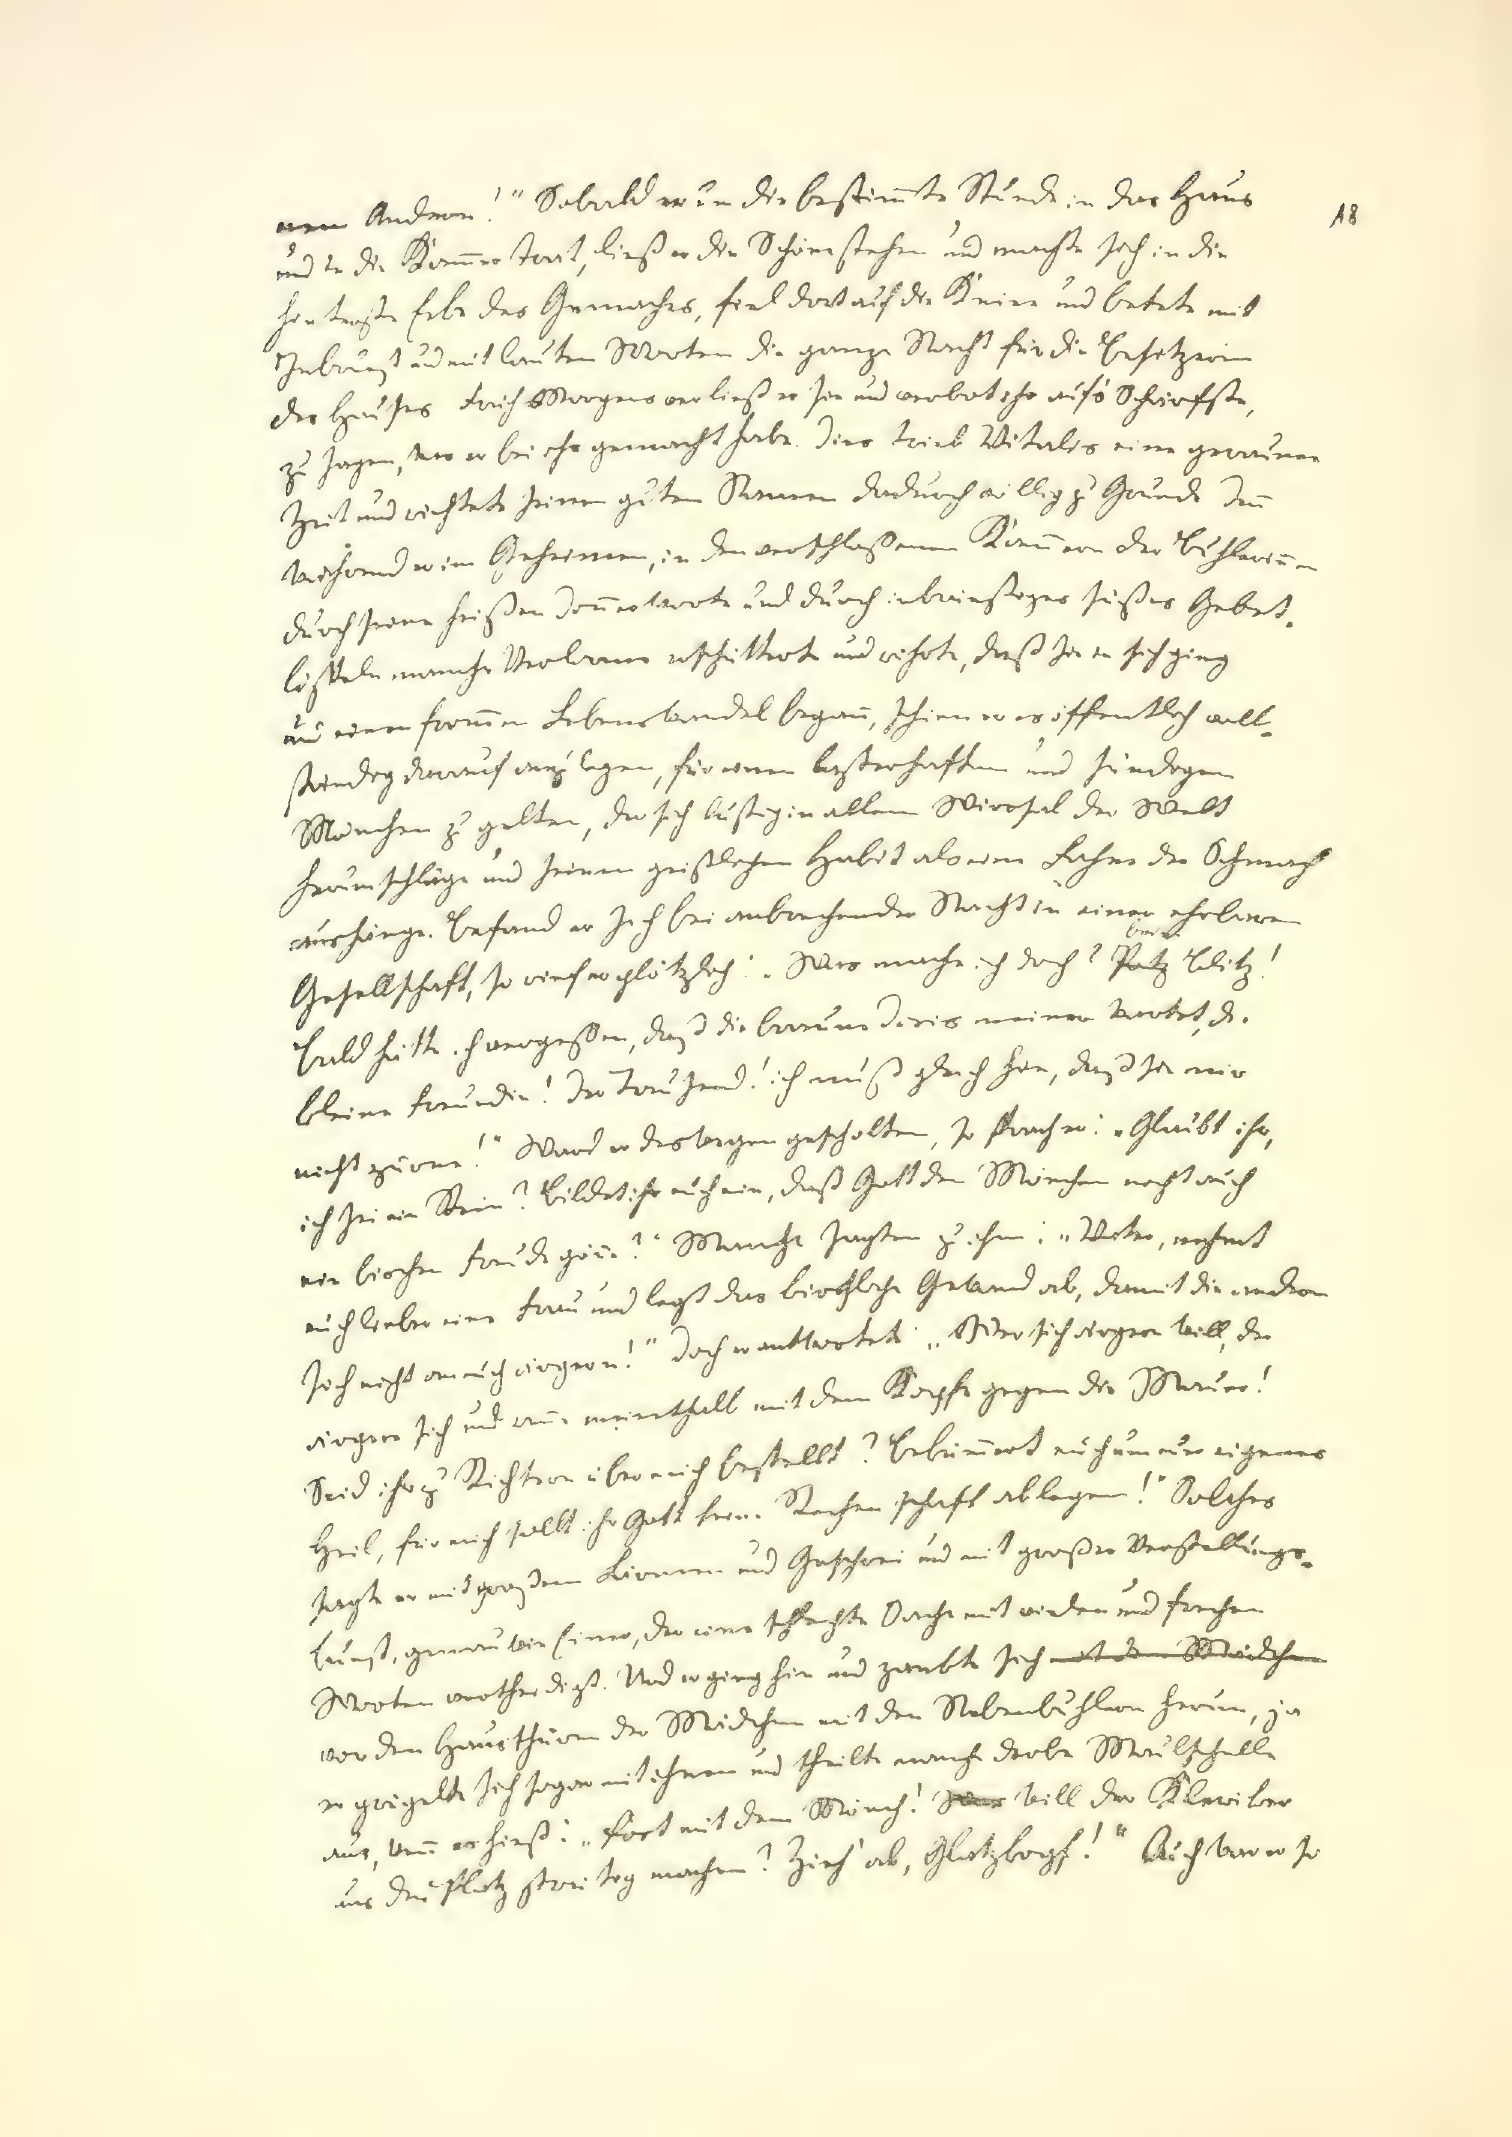 18
nem Andern!" Sobald er um die bestimmte Stunde in das Haus
und in die Kammer trat, ließ er die Schöne stehen und machte sich in die
hinterste Ecke des Gemaches, fiel dort auf die Kniee und betete mit
Inbrunst und mit lauten Worten die ganze Nacht für die Besitzerin
des Hauses. Früh Morgens verließ er sie und verbot ihr aufs Schärfste,
zu sagen, was er bei ihr gemacht habe. Dies trieb Vitalis eine geraume
Zeit und richtete seinen guten Namen dadurch völlig zu Grunde. Denn
während er im Geheimen, in den verschlossenen Kammern der Buhlerinnen
durch seine heißen Donnerworte und durch inbrünstiges süßes Gebet-
lispeln manche Verlorene erschütterte und rührte, daß sie in sich ging
und einen frommen Lebenswandel begann, schien er es öffentlich voll-
ständig darauf anzulegen, für einen lasterhaften und sündigen
Mönchen zu gelten, der sich lustig in allem Wirrsal der Welt
herumschlüge und seinen geistlichen Habit als eine Fahne der Schmach
aushänge. Befand er sich bei anbrechender Nacht in einer ehrbaren
Gesellschaft, so rief er plötzlich: „Was mache ich doch? Potz Blitz!
Bald hätte ich vergessen, daß die braune Doris meiner wartet, die
kleine Freundin! Der Tausend! ich muß gleich hin, daß sie mir
nicht zürne!" Ward er deswegen gescholten, so sprach er: „Glaubt ihr,
ich sei ein Stein? Bildet ihr euch ein, daß Gott den Mönchen nicht auch
ein bischen Freude gönne?" Manche sagten zu ihm: „Vater, nehmt
euch lieber eine Frau und legt das kirchliche Gewand ab, damit die andern
sich nicht an euch ärgern!" Doch er antwortete: „Wer sich ärgern will, der
ärgere sich und renne meinethalb mit dem Kopfe gegen die Mauer!
Seid ihr zu Richtern über mich bestellt? Bekümmert euch um euer eigenes
Heil, für mich sollt ihr Gott keine Rechenschaft ablegen!" Solches
sagte er mit großem Lärmen und Geschrei und mit großer Verstellungs-
kunst, genau wie Einer, der eine schlechte Sache mit vielen und frechen
Worten vertheidigt. Und er ging hin und zankte sich mit den Mädchen
vor den Hausthüren der Mädchen mit den Nebenbuhlern herum, ja
er prügelte sich sogar mit ihnen und theilte manche derbe Maulschelle
aus, wenn es hieß: „Fort mit dem Mönch! Was will der Kleriker
uns den Platz streitig machen? Zieh' ab, Glatzkopf!" Auch war er so